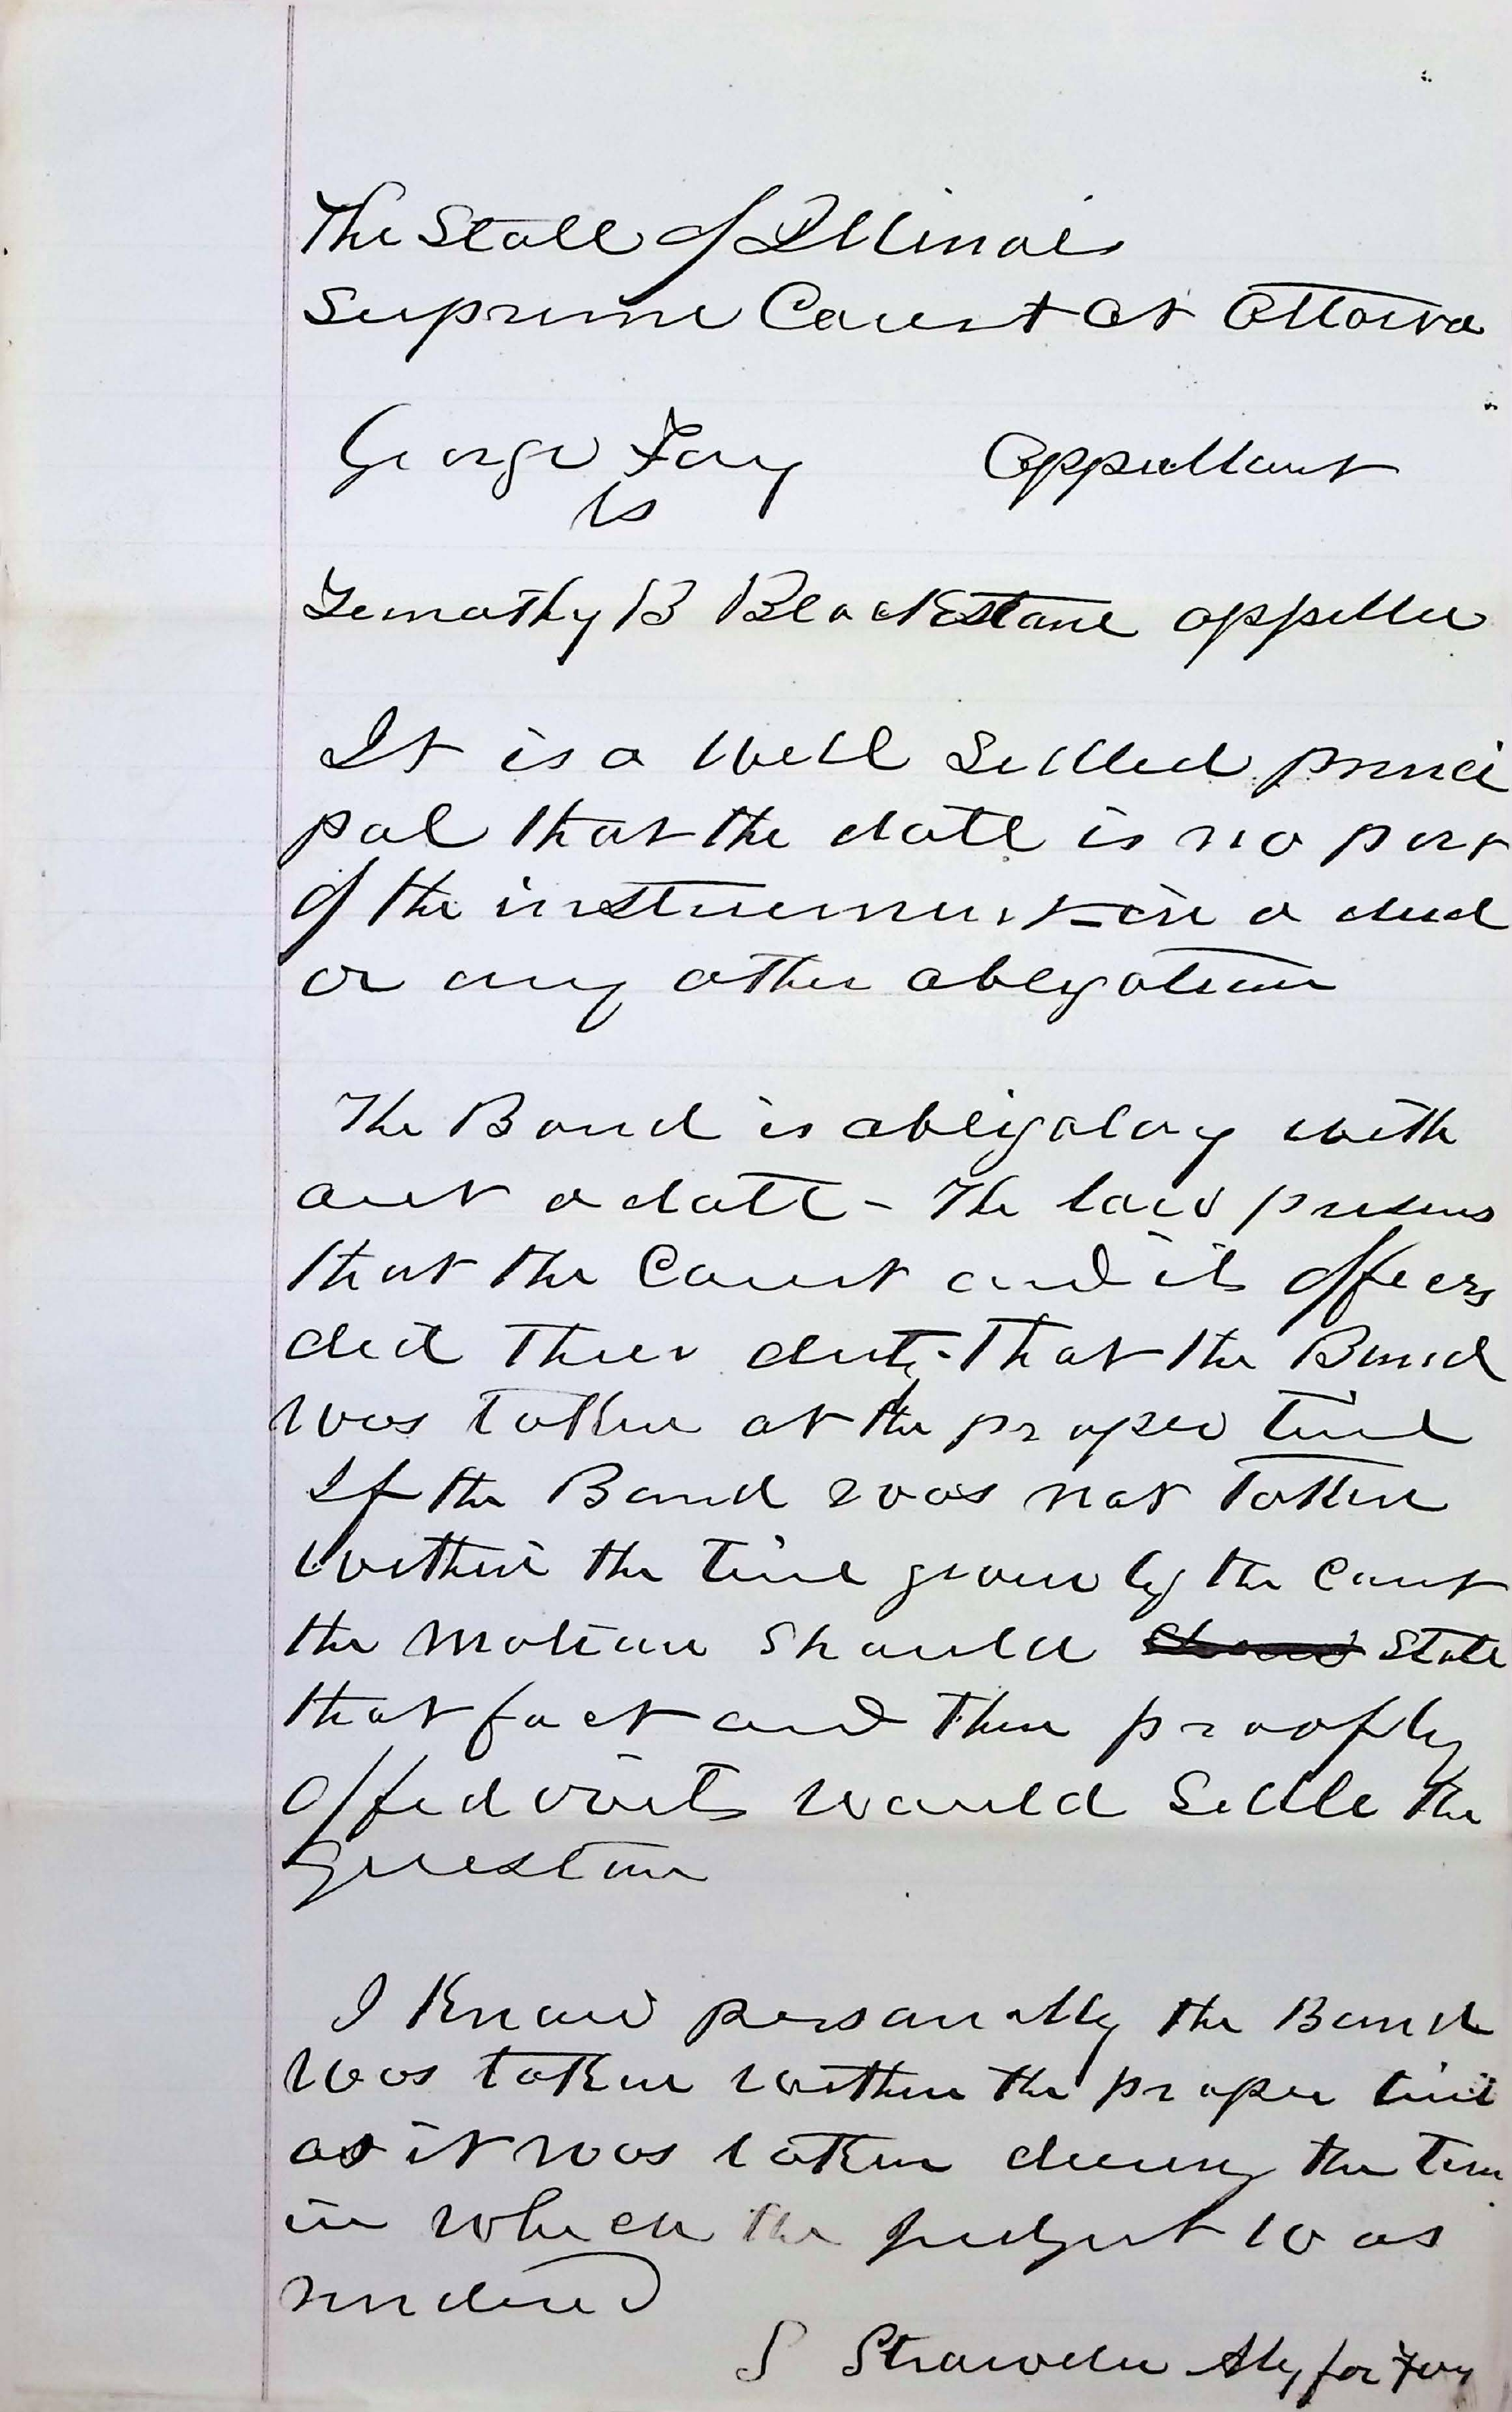 The State of Illinois
Supreme Court at Ottawa
George Fay Appellant
vs
Timothy B Blackstone appellee
It is a well settled princi
pal that the date is no part
of the instrument in a deed
or any other obligation
The Bond is obligatory with
out a date - The law presums
that the Court and its officers
did their duty - That the Bond
was taken at the proper time
If the Bond was not taken
within the time given by the Court
the motion should state
that fact and then proof by
affidavits would settle the
question
I know personally the Bond
was taken within the proper time
as it was taken during the term
in which the judgmt was
rendered
S Strawder Atty for Fay